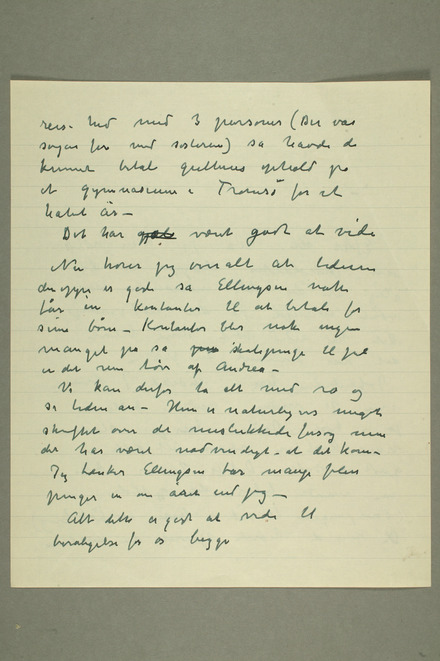 reise hid med 3 personer (Der var
sørget for med søsteren) så havde de
kunnet betale guttens ophold på
et gymnasium i Tromsö for et
halvt år –
Det har været godt at vide
Nu hører jeg overalt at tiderne
deroppe er gode så Ellingsen nok
får in kontanter til at betale for
sine börn – Kontanter blir nok ingen
mangel på så skolepenge til jul
er det rene törv af Andrea –
Vi kan derfor ta alt med ro og
se tiden an – Hun er naturligvis meget
skuffet over det mislukkede forsøg men
det har været nødvendigt – at det kom –
Jeg tænker Ellingsen har mange flere
penger in om året end jeg –
Alt dette er godt at vide til
beroligelse for os begge